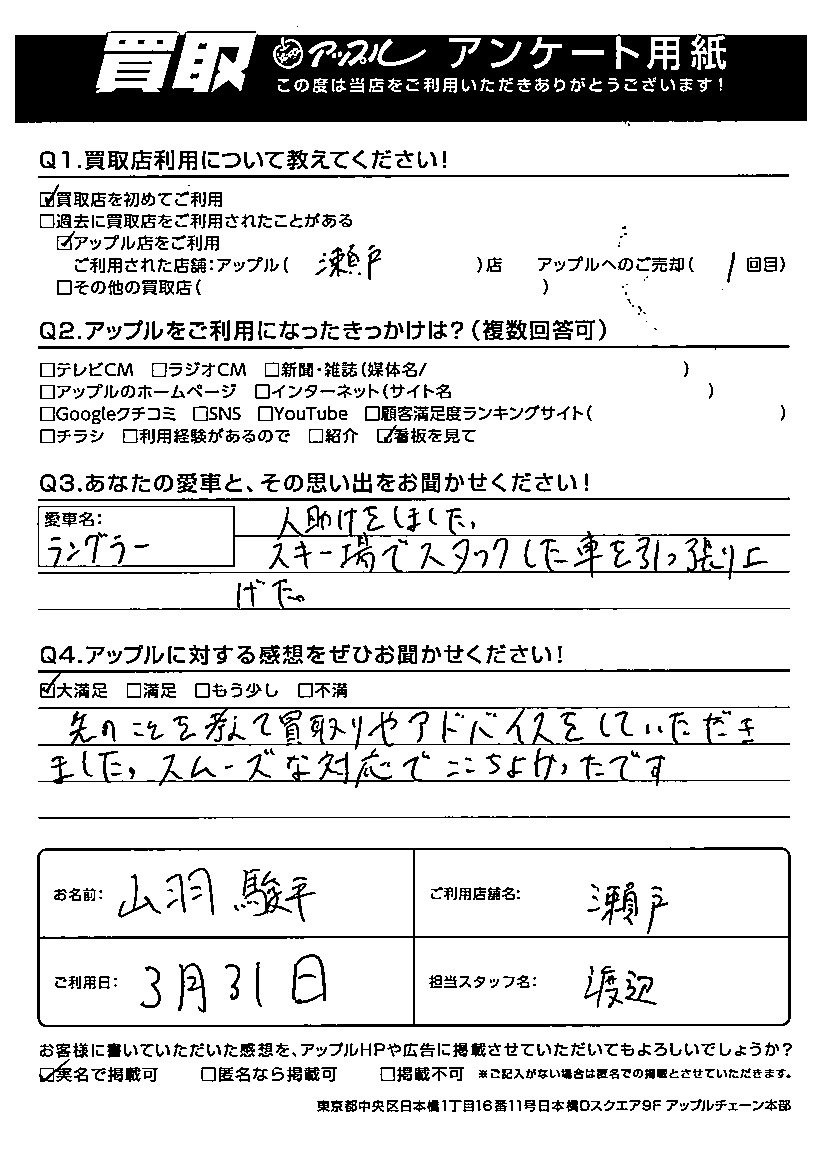 買取 アップル アンケート用紙
この度は当店をご利用いただきありがとうございます!
Q1.買取店利用について教えてください!
☑買取店を初めてご利用
□過去に買取店をご利用されたことがある
☑アップル店をご利用
ご利用された店舗:アップル( 瀬戸 )店 アップルへのご売却( 1 回目)
□その他の買取店( )
Q2.アップルをご利用になったきっかけは?(複数回答可)
□テレビCM □ラジオCM □新聞・雑誌(媒体名/ )
□アップルのホームページ □インターネット(サイト名 )
□Googleクチコミ □SNS □YouTube □顧客満足度ランキングサイト( )
□チラシ □利用経験があるので □紹介 ☑看板を見て
Q3.あなたの愛車と、その思い出をお聞かせください!
愛車名:
ラングラー
人助けをしました。
スキー場でスタックした車を引っ張り上
げた。
Q4.アップルに対する感想をぜひお聞かせください!
☑大満足 □満足 □もう少し □不満
先のことを考えて買取りやアドバイスをしていただき
ました。スムーズな対応でここちよかったです
お名前: 山羽 駿平
ご利用店舗名: 瀬戸
ご利用日: 3月31日
担当スタッフ名: 渡辺
お客様に書いていただいた感想を、アップルHPや広告に掲載させていただいてもよろしいでしょうか?
☑実名で掲載可 □匿名なら掲載可 □掲載不可 ※ご記入がない場合は匿名での掲載とさせていただきます。
東京都中央区日本橋1丁目16番11号日本橋Dスクエア9F アップルチェーン本部